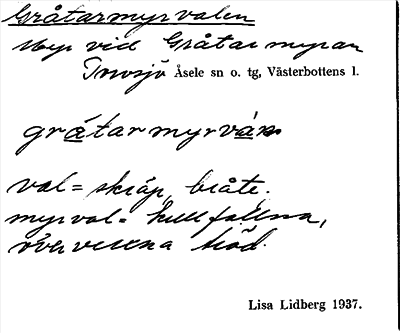 Gråtarmyrvalen
Myr vid Gråtarmyran
Torvsjö Åsele sn o. tg, Västerbottens l.
gråtarmyrván
val = skräp, bråte.
myrval = kullfallna,
träd.
Lisa Lidberg 1937.